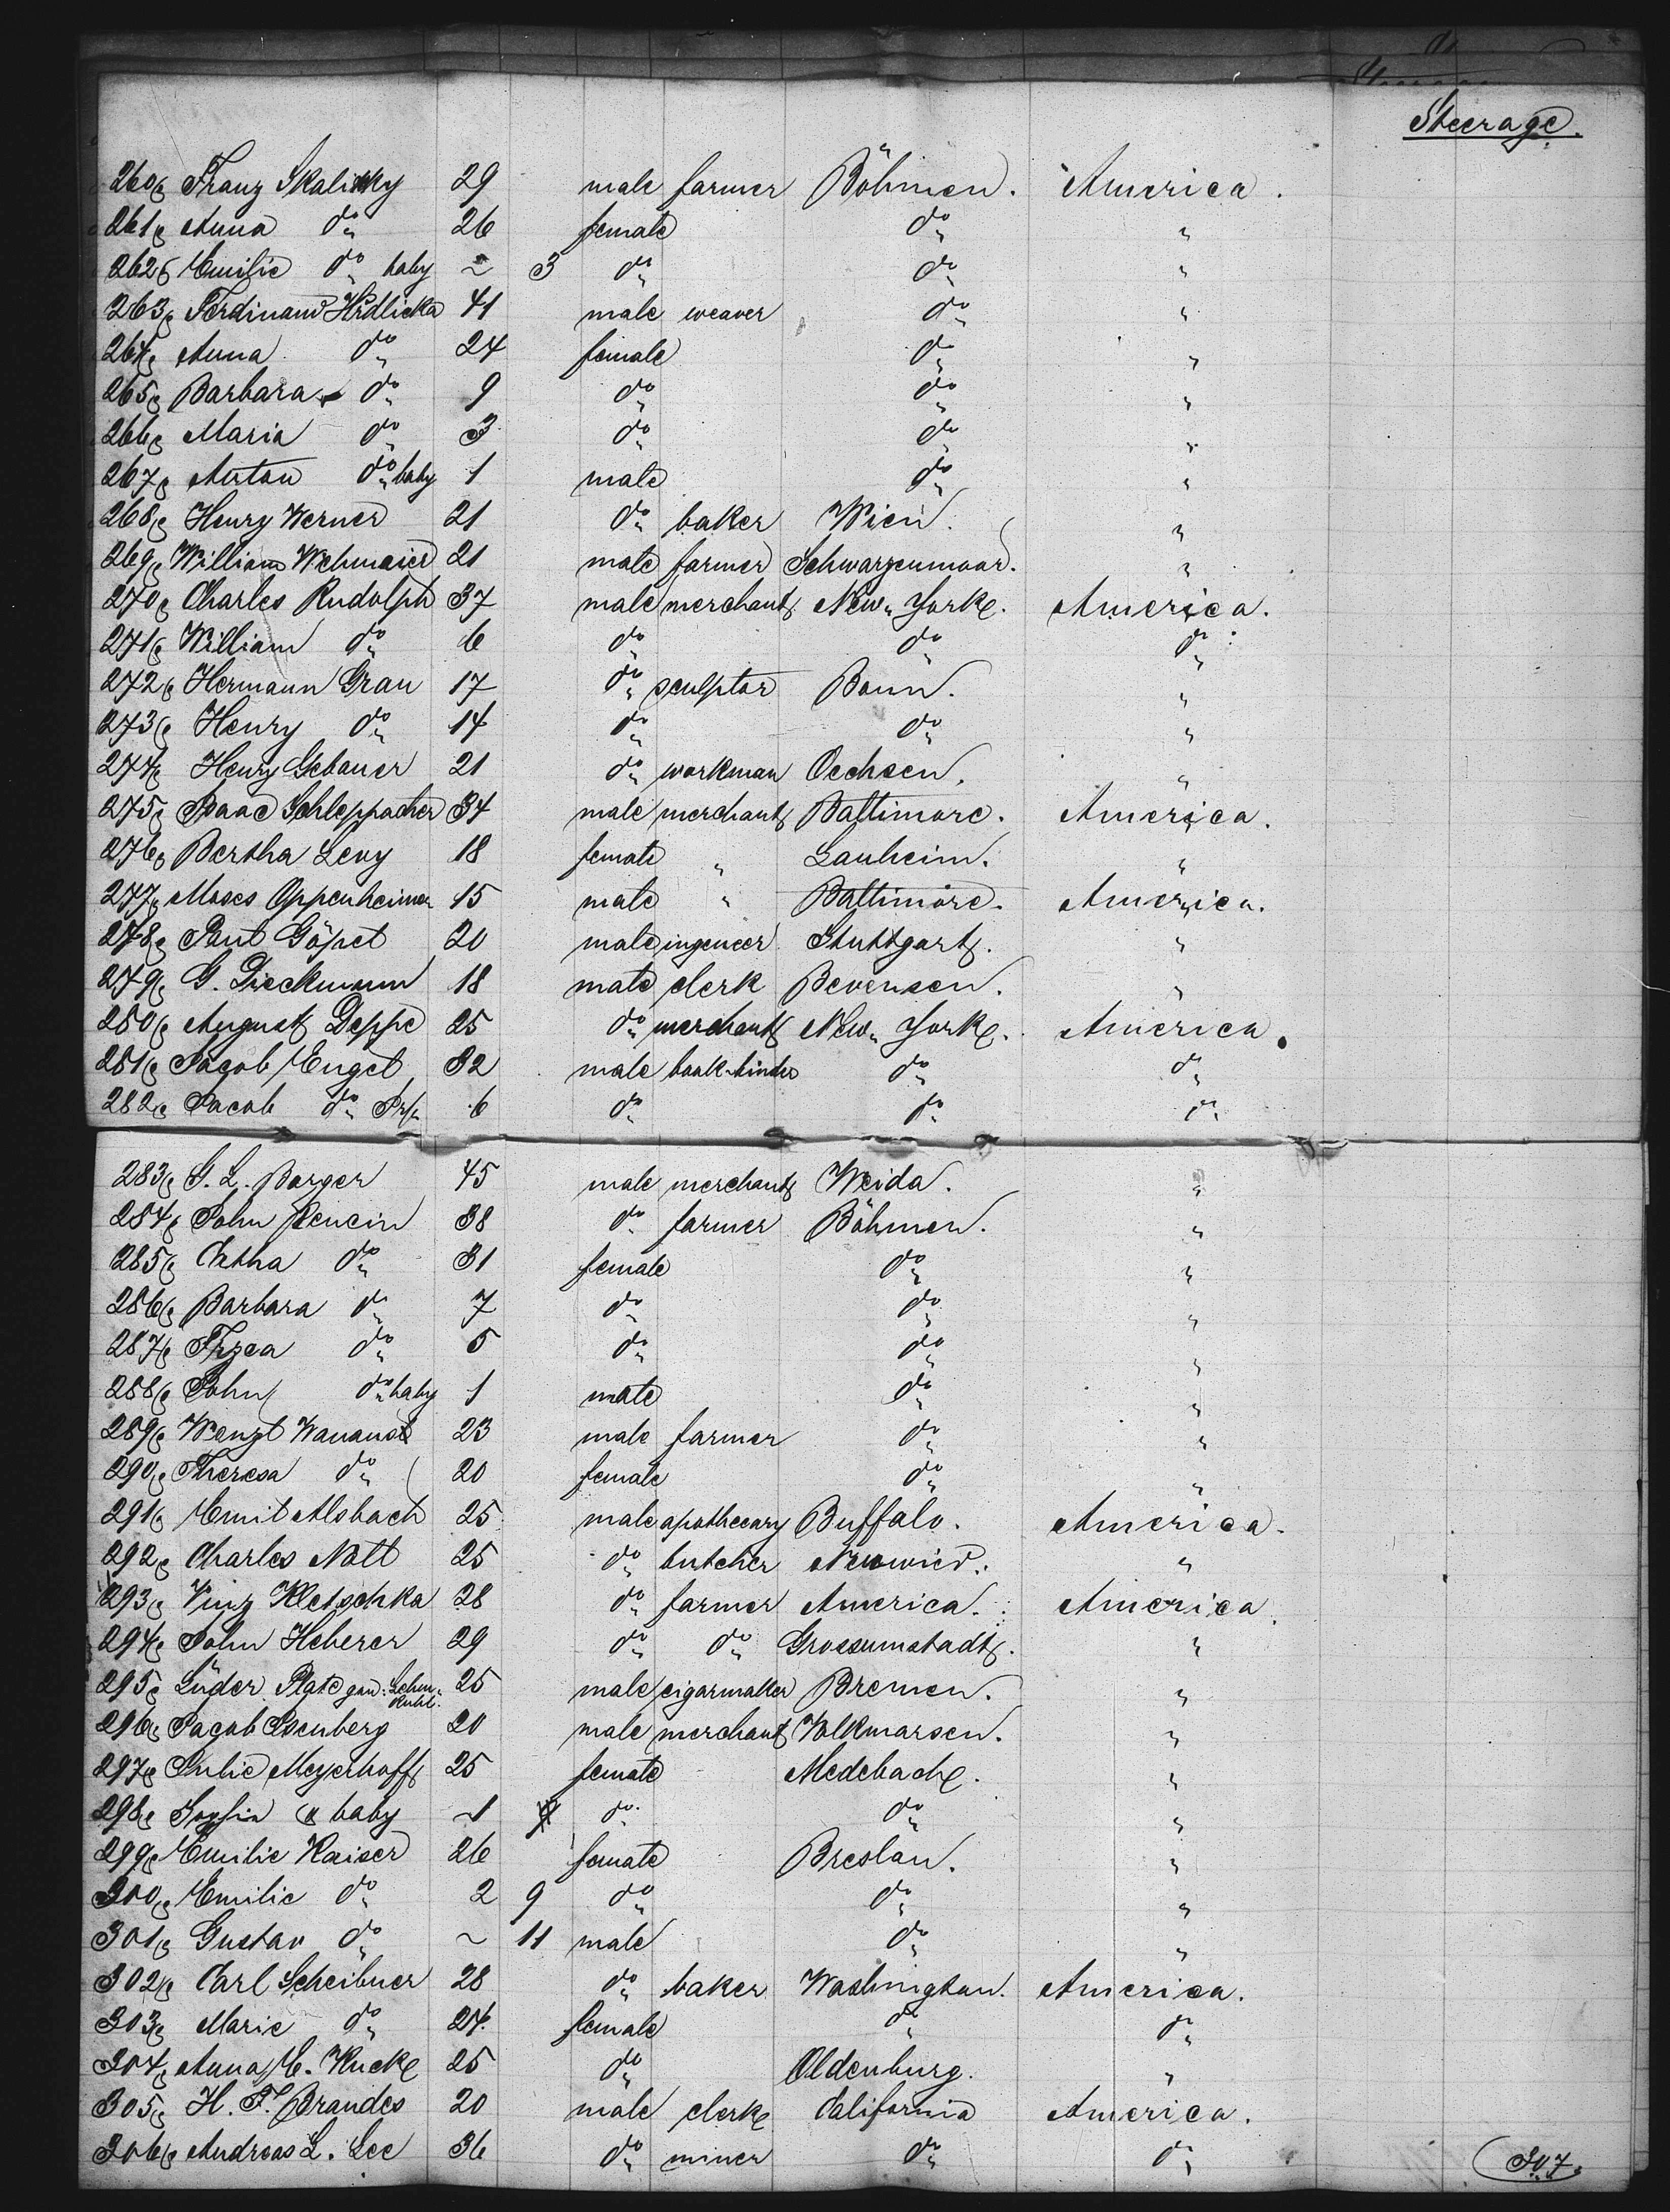 Steerage.
260, Franz Skalicky 29 male farmer Böhmen. America.
261, Anna do 26 female do "
262, Emilie do baby ~ 3 do do "
263, Ferdinand Hrdlicka 41 male weaver do "
264, Anna do 24 female do "
265, Barbara do 9 do do "
266, Maria do 3 do do "
267, Anton do baby 1 male do "
268, Henry Werner 21 do baker Wien. "
269, William Wehmaier 21 male farmer Schwarzenmoor. "
270, Charles Rudolph 37 male merchant New-York. America.
271, William do 6 do do do
272, Hermann Grau 17 do sculptor Bonn. "
273, Henry do 14 do do "
274, Henry Gebauer 21 do workman Oechsen. "
275, Isaac Schleppacher 34 male merchant Baltimore. America.
276, Bertha Levy 18 female " Lauheim. "
277, Moses Oppenheimer 15 male " Baltimore. America.
278, Paul Göpel 20 male ingeneer Stuttgart. "
279, G. Dieckmann 18 male clerk Bevensen. "
280, August Deppe 25 do merchant New-York. America.
281, Jacob Engel 32 male book-binder do do
282, Jacob do 6 do do do
283, G. L. Borger 45 male merchant Weida. "
284, John Rencin 38 do farmer Böhmen. "
285, do 31 female do "
286, Barbara do 7 do do "
287, do 5 do do "
288, John do baby 1 male do "
289, Wenzl 23 male farmer do "
290, Theresa do 20 female do "
291, Emil Alsbach 25 male apothecary Buffalo. America.
292, Charles Nolt 25 do butcher Neuwied. "
293, Vinz Kletschka 28 do farmer America. America.
294, John Heberer 29 do do Grossumstadt. "
295, Lüder Plate gen. 25 male cigarmaker Bremen. "
296, Jacob Isenberg 20 male merchant Volkmarsen. "
297, Julie Meyerhoff 25 female Medebach. "
298, Sophia " baby ~1 do do "
299, Emilie Kaiser 26 female Breslau. "
300, Emilie do 2 9 do do "
301, Gustav do ~ 11 male do "
302, Carl Scheibner 28 do baker Washington. America.
303, Marie do 24 female do do
304, Anna E. Kuck 25 do Oldenburg. "
305, H. F. Brandes 20 male clerk California America.
306, Andreas L. Lee 36 do miner do do
307.